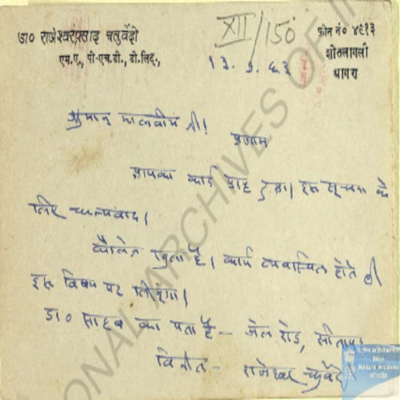 XII/150
डा० राजेश्वरप्रसाद चतुर्वेदी
एम.ए., पी-एच.डी., डी.लिट्.,
फ़ोन नं० ४९१३
शीतलागली
आगरा
१३.५.६३
श्रीमान् मालवीय जी!
प्रणाम
आपका कार्ड प्राप्त हुआ। इस सूचना के
लिए धन्यवाद।
कॉलेज खुला है। कार्य व्यवस्थित होते ही
इस विषय पर लिखूंगा।
डा० साहब का पता है — जेल रोड, सीतापुर
विनीत -
राजेश्वर चतुर्वेदी
NATIONAL ARCHIVES OF INDIA